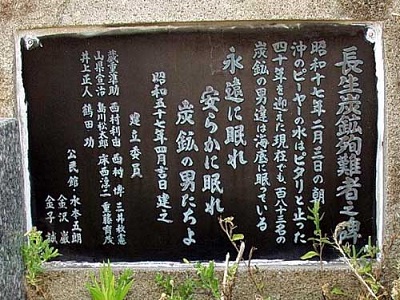 長生炭鉱殉難者之碑
昭和十七年二月三日の朝
沖のピーヤの水はピタリと止った
四十年を迎えた現在でも百八十三名の
炭鉱の男達は海底に眠っている
永遠に眠れ
安らかに眠れ
炭鉱の男たちよ
昭和五十七年四月吉日建之
建立委員
西村利由 西村博 三井敏憲
島川松太郎 床西淳二 重藤育茂
井上正人 鶴田功
公民館 水本五朗
金沢巌
金子誠